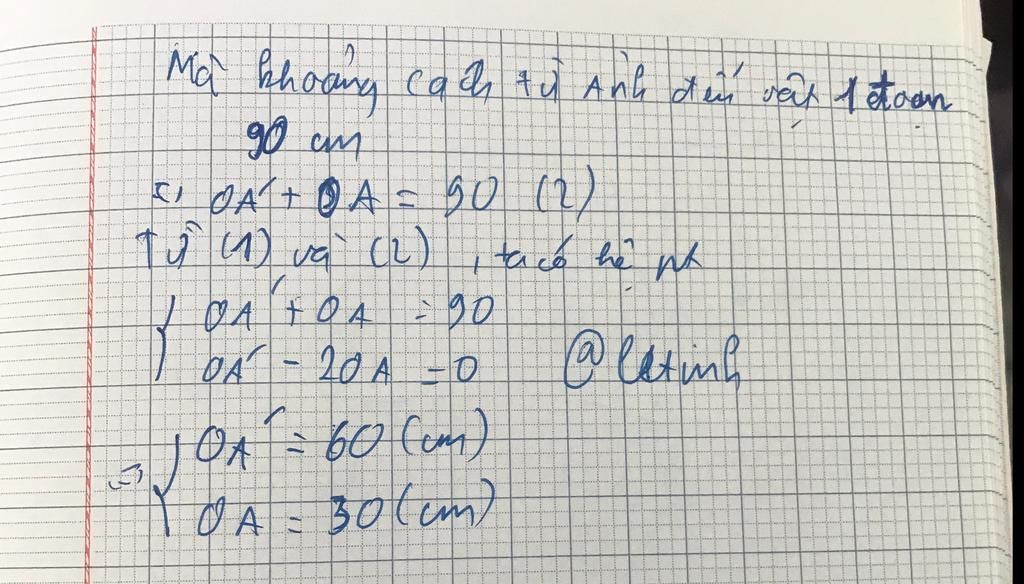 Mà khoảng cách từ ảnh đến vật 1 đoạn
90 cm
=> OA' + OA = 90 (2)
Từ (1) và (2), ta có hệ pt
OA' + OA = 90
OA' - 2OA = 0 @letinh
=> OA' = 60 (cm)
OA = 30 (cm)